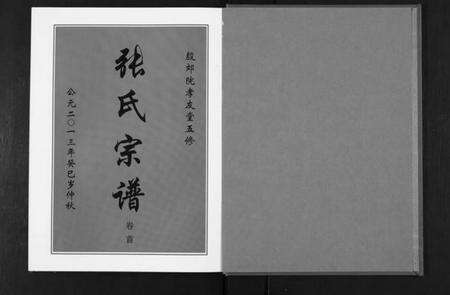 殷郊院孝友堂五修
张氏宗谱
卷首
公元二〇一三年癸巳岁仲秋